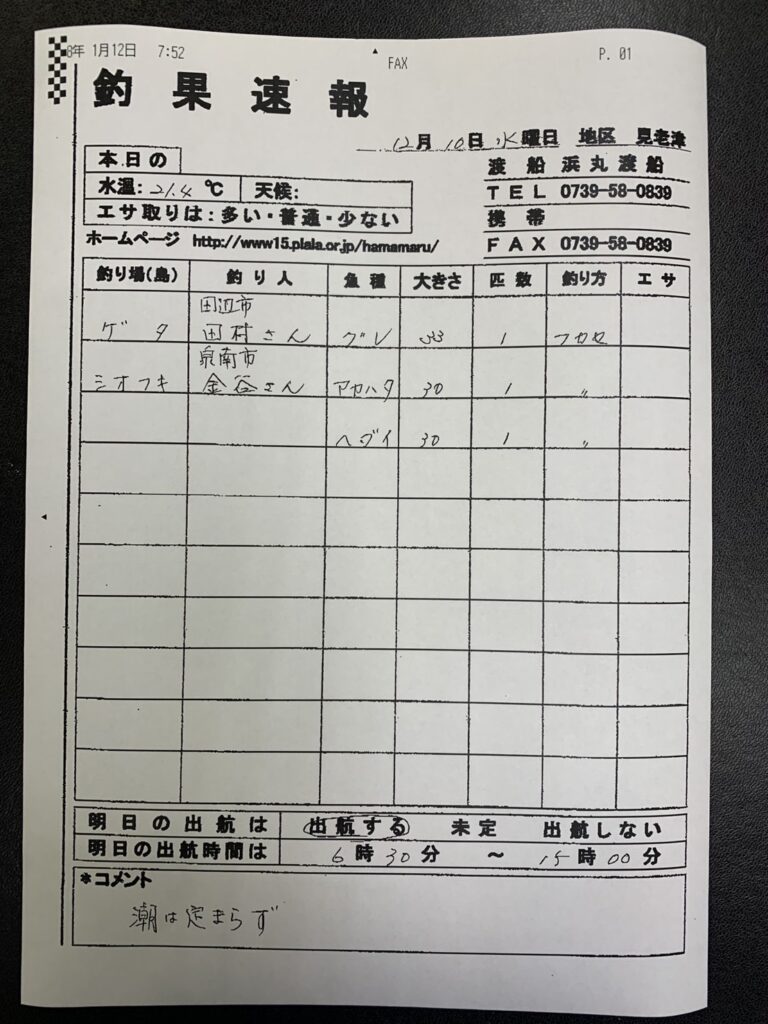 8年 1月12日 7:52 FAX P. 01
釣果速報
12月10日水曜日 地区 見老津
本日の
水温:21.4℃ 天候:
エサ取りは:多い・普通・少ない
渡船 浜丸渡船
TEL 0739-58-0839
携帯
FAX 0739-58-0839
ホームページ http://www15.plala.or.jp/hamamaru/
釣り場(島) 釣り人 魚種 大きさ 匹数 釣り方 エサ
田辺市
ゲタ 田村さん グレ 33 1 フカセ
泉南市
シオフキ 金谷さん アカハタ 30 1 〃
ヘダイ 30 1 〃
明日の出航は 出航する 未定 出航しない
明日の出航時間は 6時30分 ~ 15時00分
*コメント
潮は定まらず